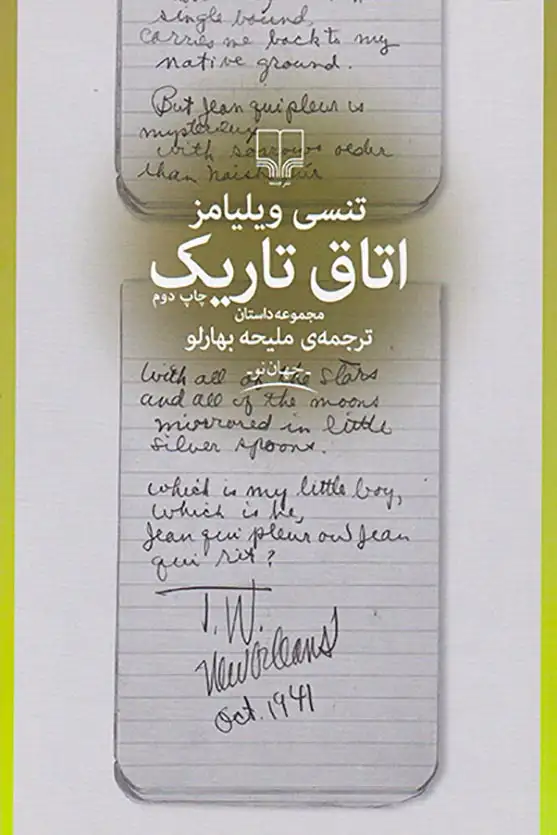 single bound,
carries me back to my
native ground.
But Jean qui pleur is
mysterious
with sorrows older
than
نشر چشمه
تنسی ویلیامز
اتاق تاریک
چاپ دوم
مجموعه داستان
ترجمه‌ی ملیحه بهارلو
-جهان نو-
With all of the stars
and all of the moons
mirrored in little
silver spoons.
which is my little boy,
which is he,
Jean qui pleur ou Jean
qui rit?
T.W.
New Orleans
Oct. 1941